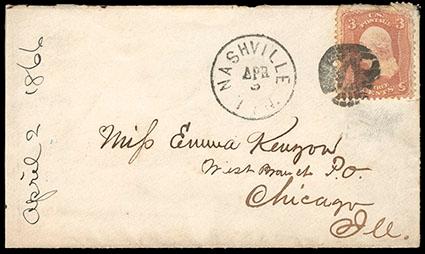 April 2 1866
NASHVILLE
APR
3
TEN.
3 U.S. 3
POSTAGE
THREE CENTS
Miss Emma Kenyon
West Branch P.O.
Chicago
Ill.